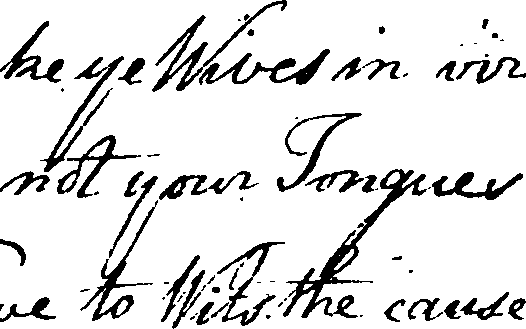 be ye Wives in vir
not your Tongues
ve to Wits the cause